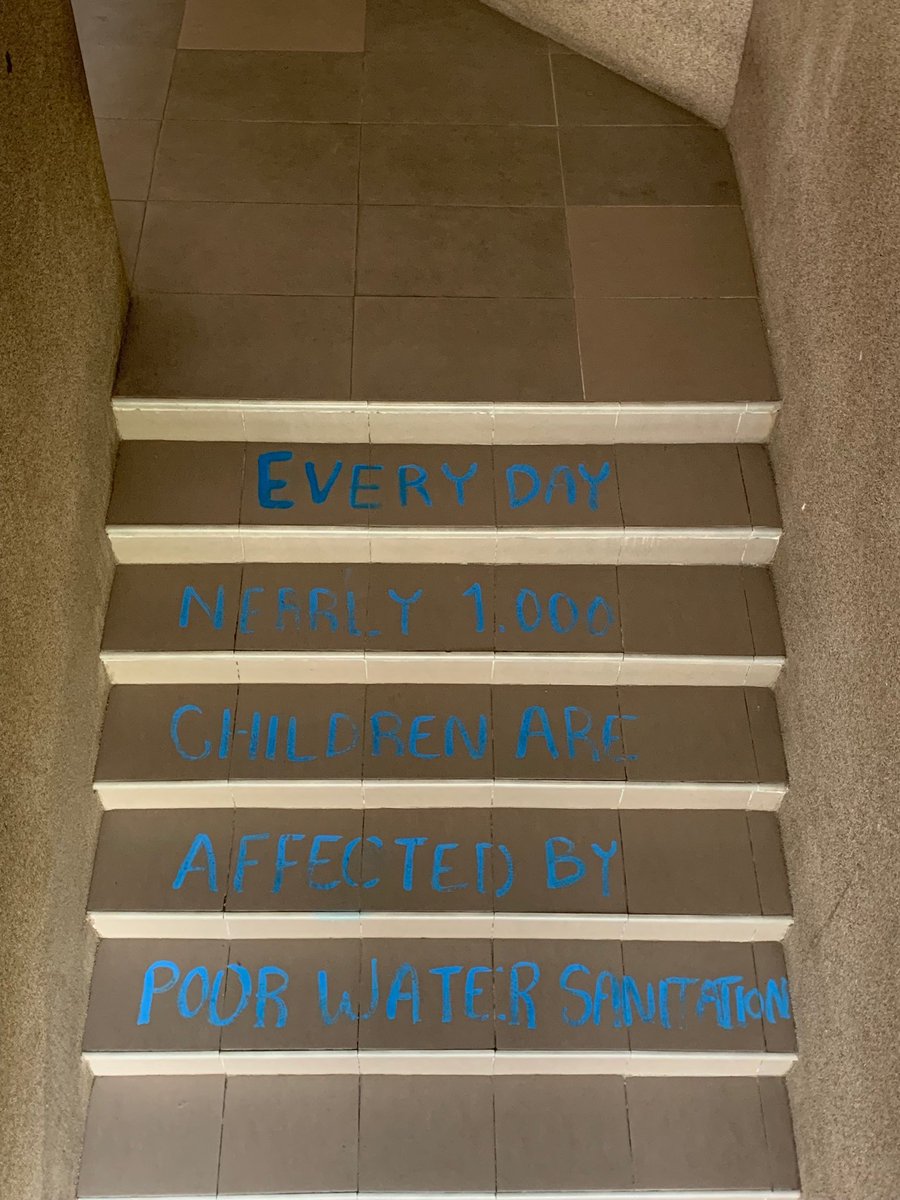 EVERY DAY
NEARLY 1.000
CHILDREN ARE
AFFECTED BY
POOR WATER SANITATION